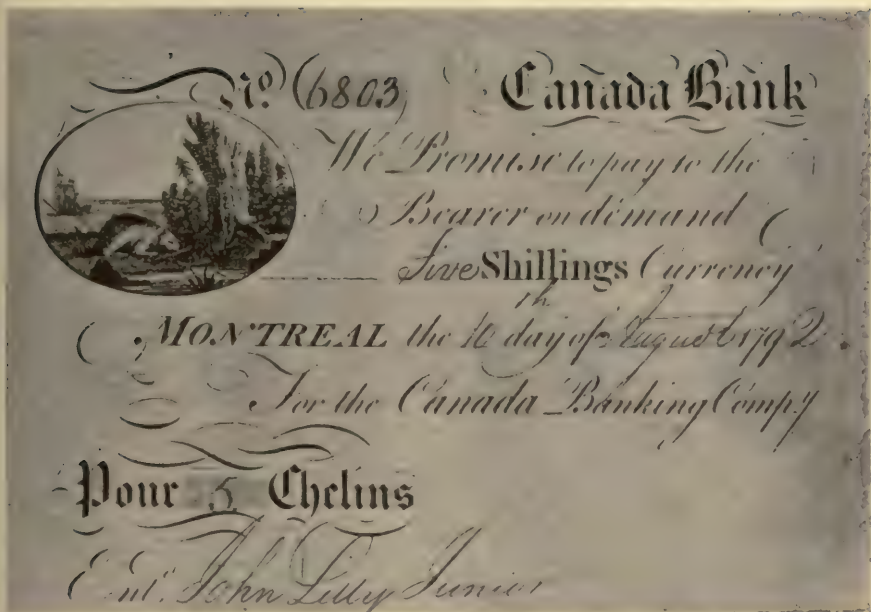 No. 6803 Canada Bank
We Promise to pay to the
Bearer on demand
Five Shillings Currency
MONTREAL the 10th day of August 1792
For the Canada Banking Compy
Pour 5 Chelins
Entd. John Lilly Junior